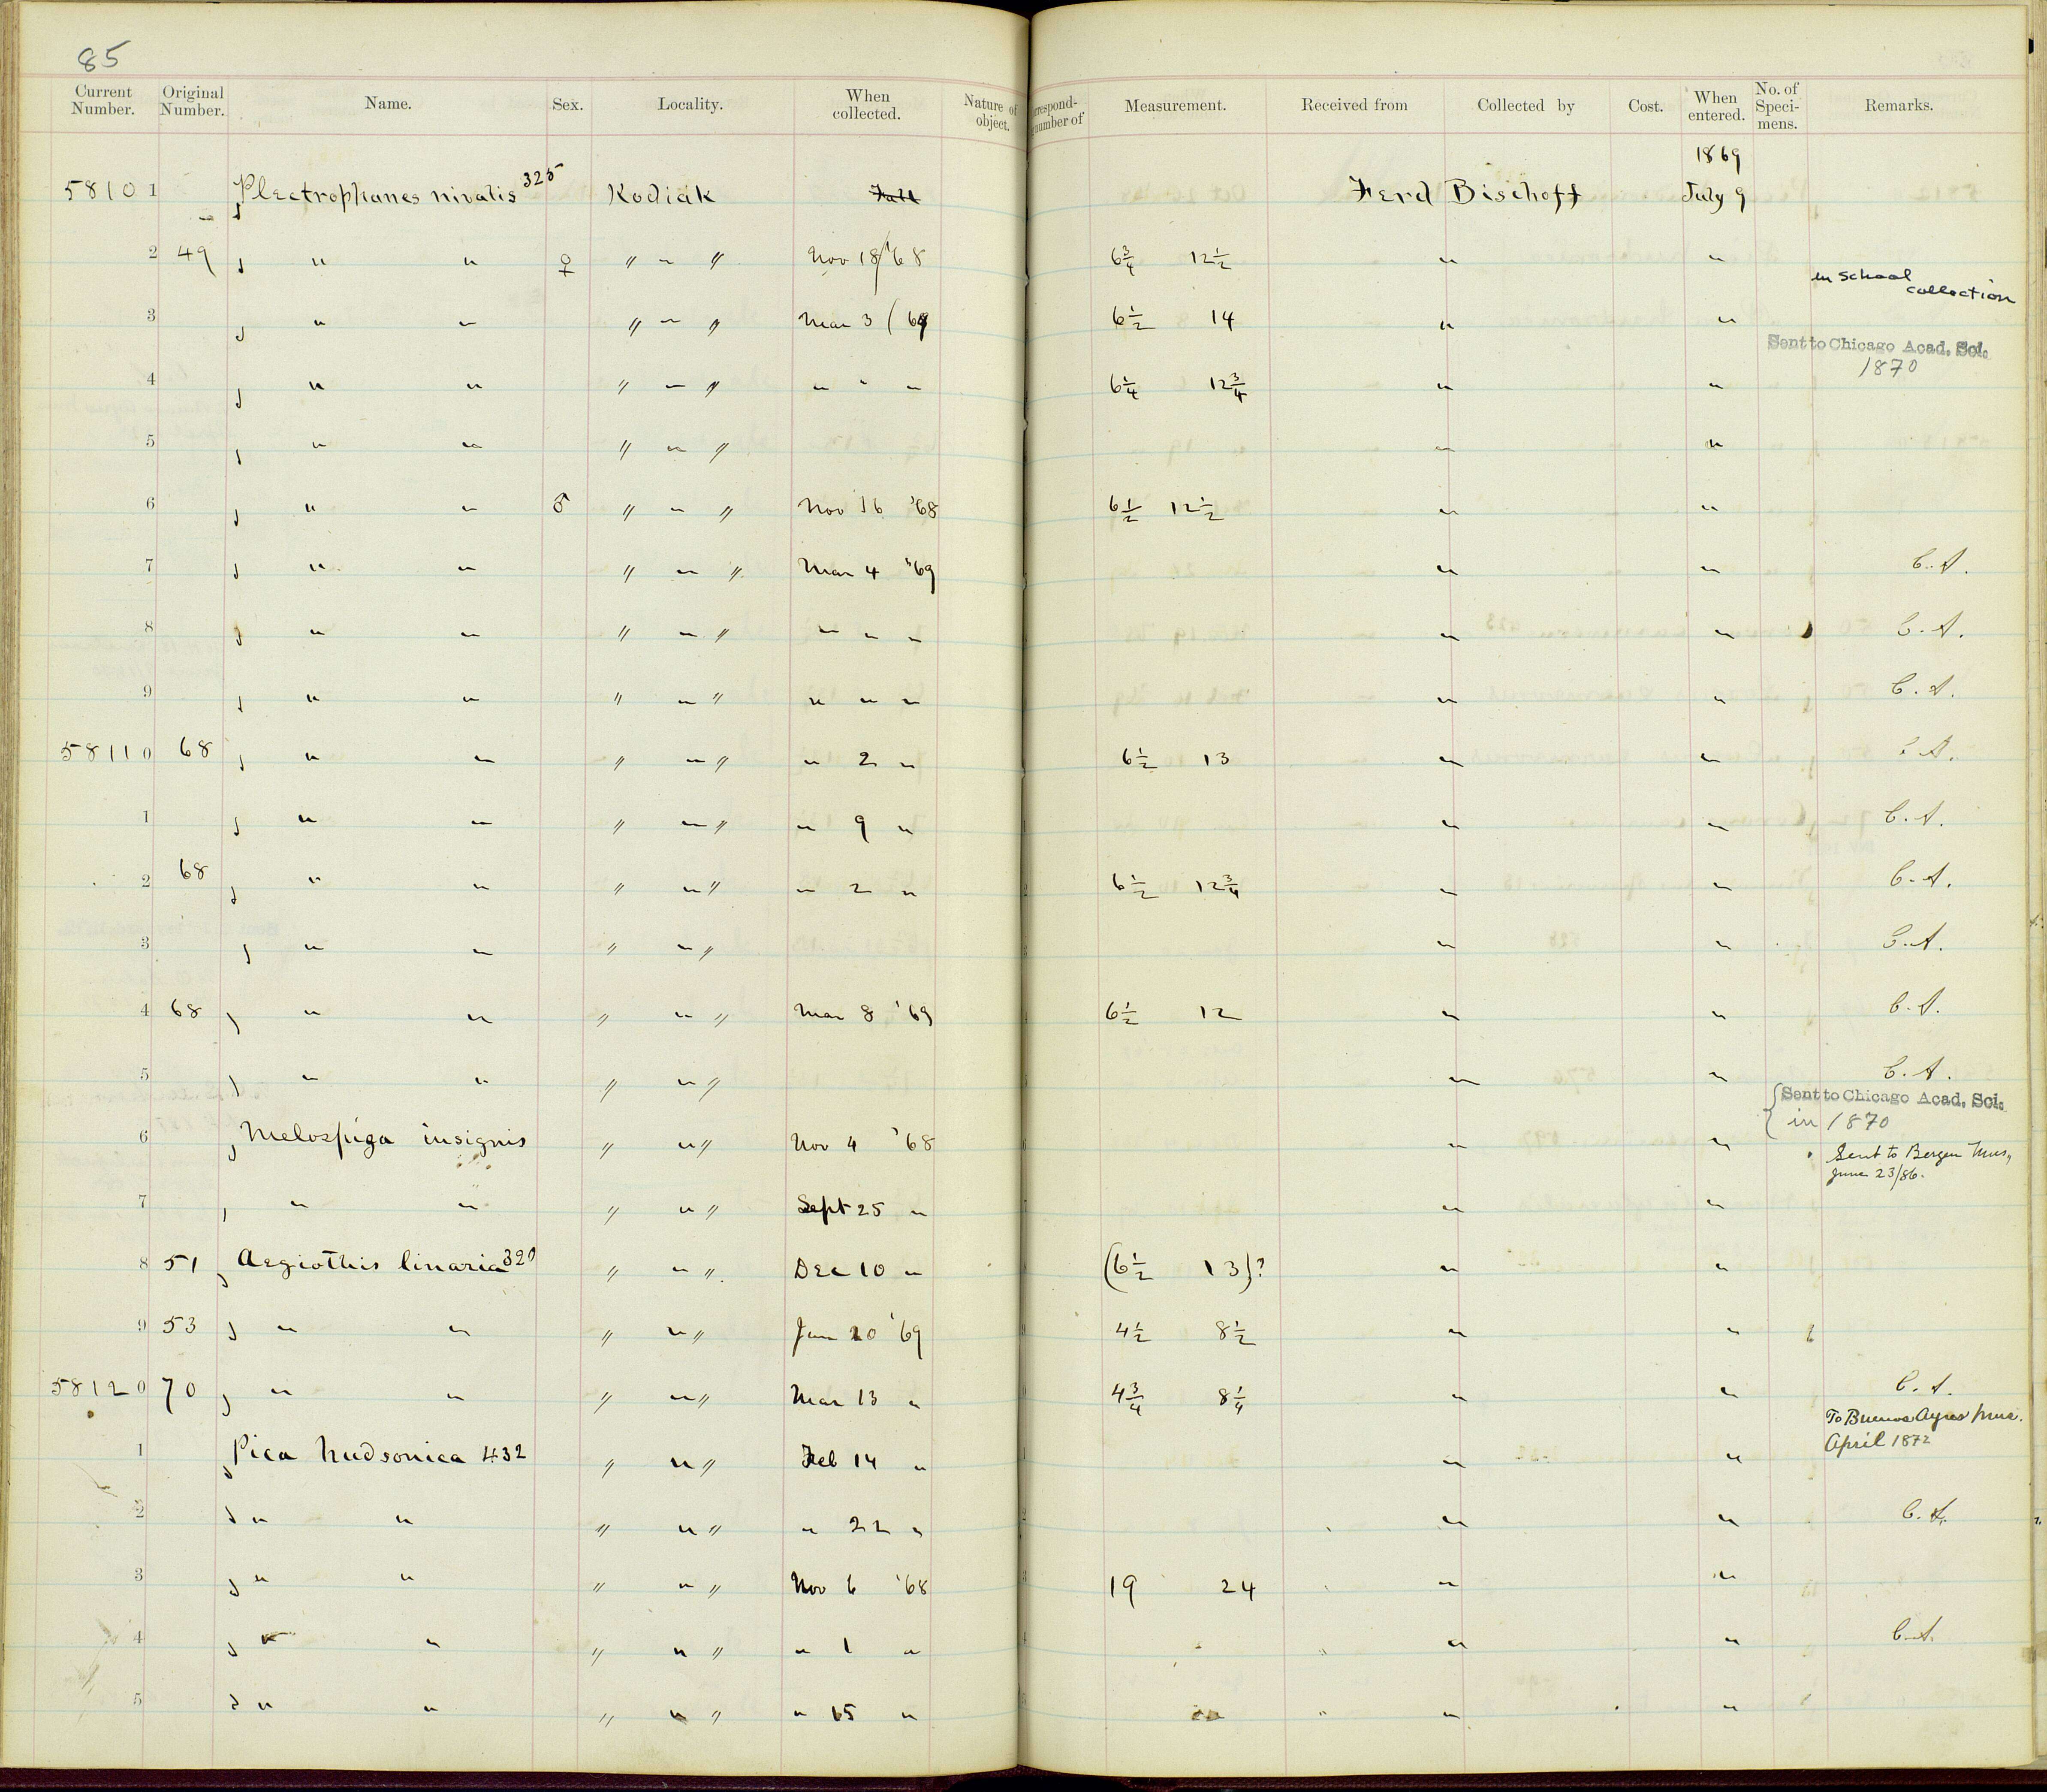 85
Current Number. Original Number. Name. Sex. Locality. When collected. Nature of object. respond- number of Measurement. Received from Collected by Cost. When entered. No. of Speci- mens. Remarks.
1869
5810 1 Plectrophanes nivalis 325 Kodiak Fall Ferd Bischoff July 9
2 49 " " ♀ " " " Nov 18/68 6 3/4 12 1/2 " "
in school collection
3 " " " " " Mar 3 /69 6 1/2 14 " "
Sent to Chicago Acad. Sci. 1870
4 " " " " " " " " 6 1/4 12 3/4 " "
5 " " " " " " "
6 " " ♂ " " " Nov 16 '68 6 1/2 12 1/2 " "
7 " " " " " Mar 4 '69 " " C. A.
8 " " " " " " " " " " C. A.
9 " " " " " " " " " " C. A.
5811 0 68 " " " " " " 2 " 6 1/2 13 " " C. A.
1 " " " " " " 9 " " " C. A.
2 68 " " " " " " 2 " 6 1/2 12 3/4 " " C. A.
3 " " " " " " " C. A.
4 68 " " " " " Mar 8 '69 6 1/2 12 " " C. A.
5 " " " " " " " C. A.
Sent to Chicago Acad. Sci. in 1870
6 Melospiza insignis " " " Nov 4 '68 " "
Sent to Bergen Mus,
June 23/86.
7 " " " " " Sept 25 " " "
8 51 Aegiothis linaria 320 " " " Dec 10 " (6 1/2 13)? " "
9 53 " " " " " Jan 20 '69 4 1/2 8 1/2 " "
5812 0 70 " " " " " Mar 13 " 4 3/4 8 1/4 " " C. A.
To Buenos Ayres Mus.
April 1872
1 Pica hudsonica 432 " " " Feb 14 " " "
2 " " " " " " 22 " " " C. A.
3 " " " " " Nov 6 '68 19 24 " "
4 " " " " " " 1 " " " C. A.
5 " " " " " " 15 " " "